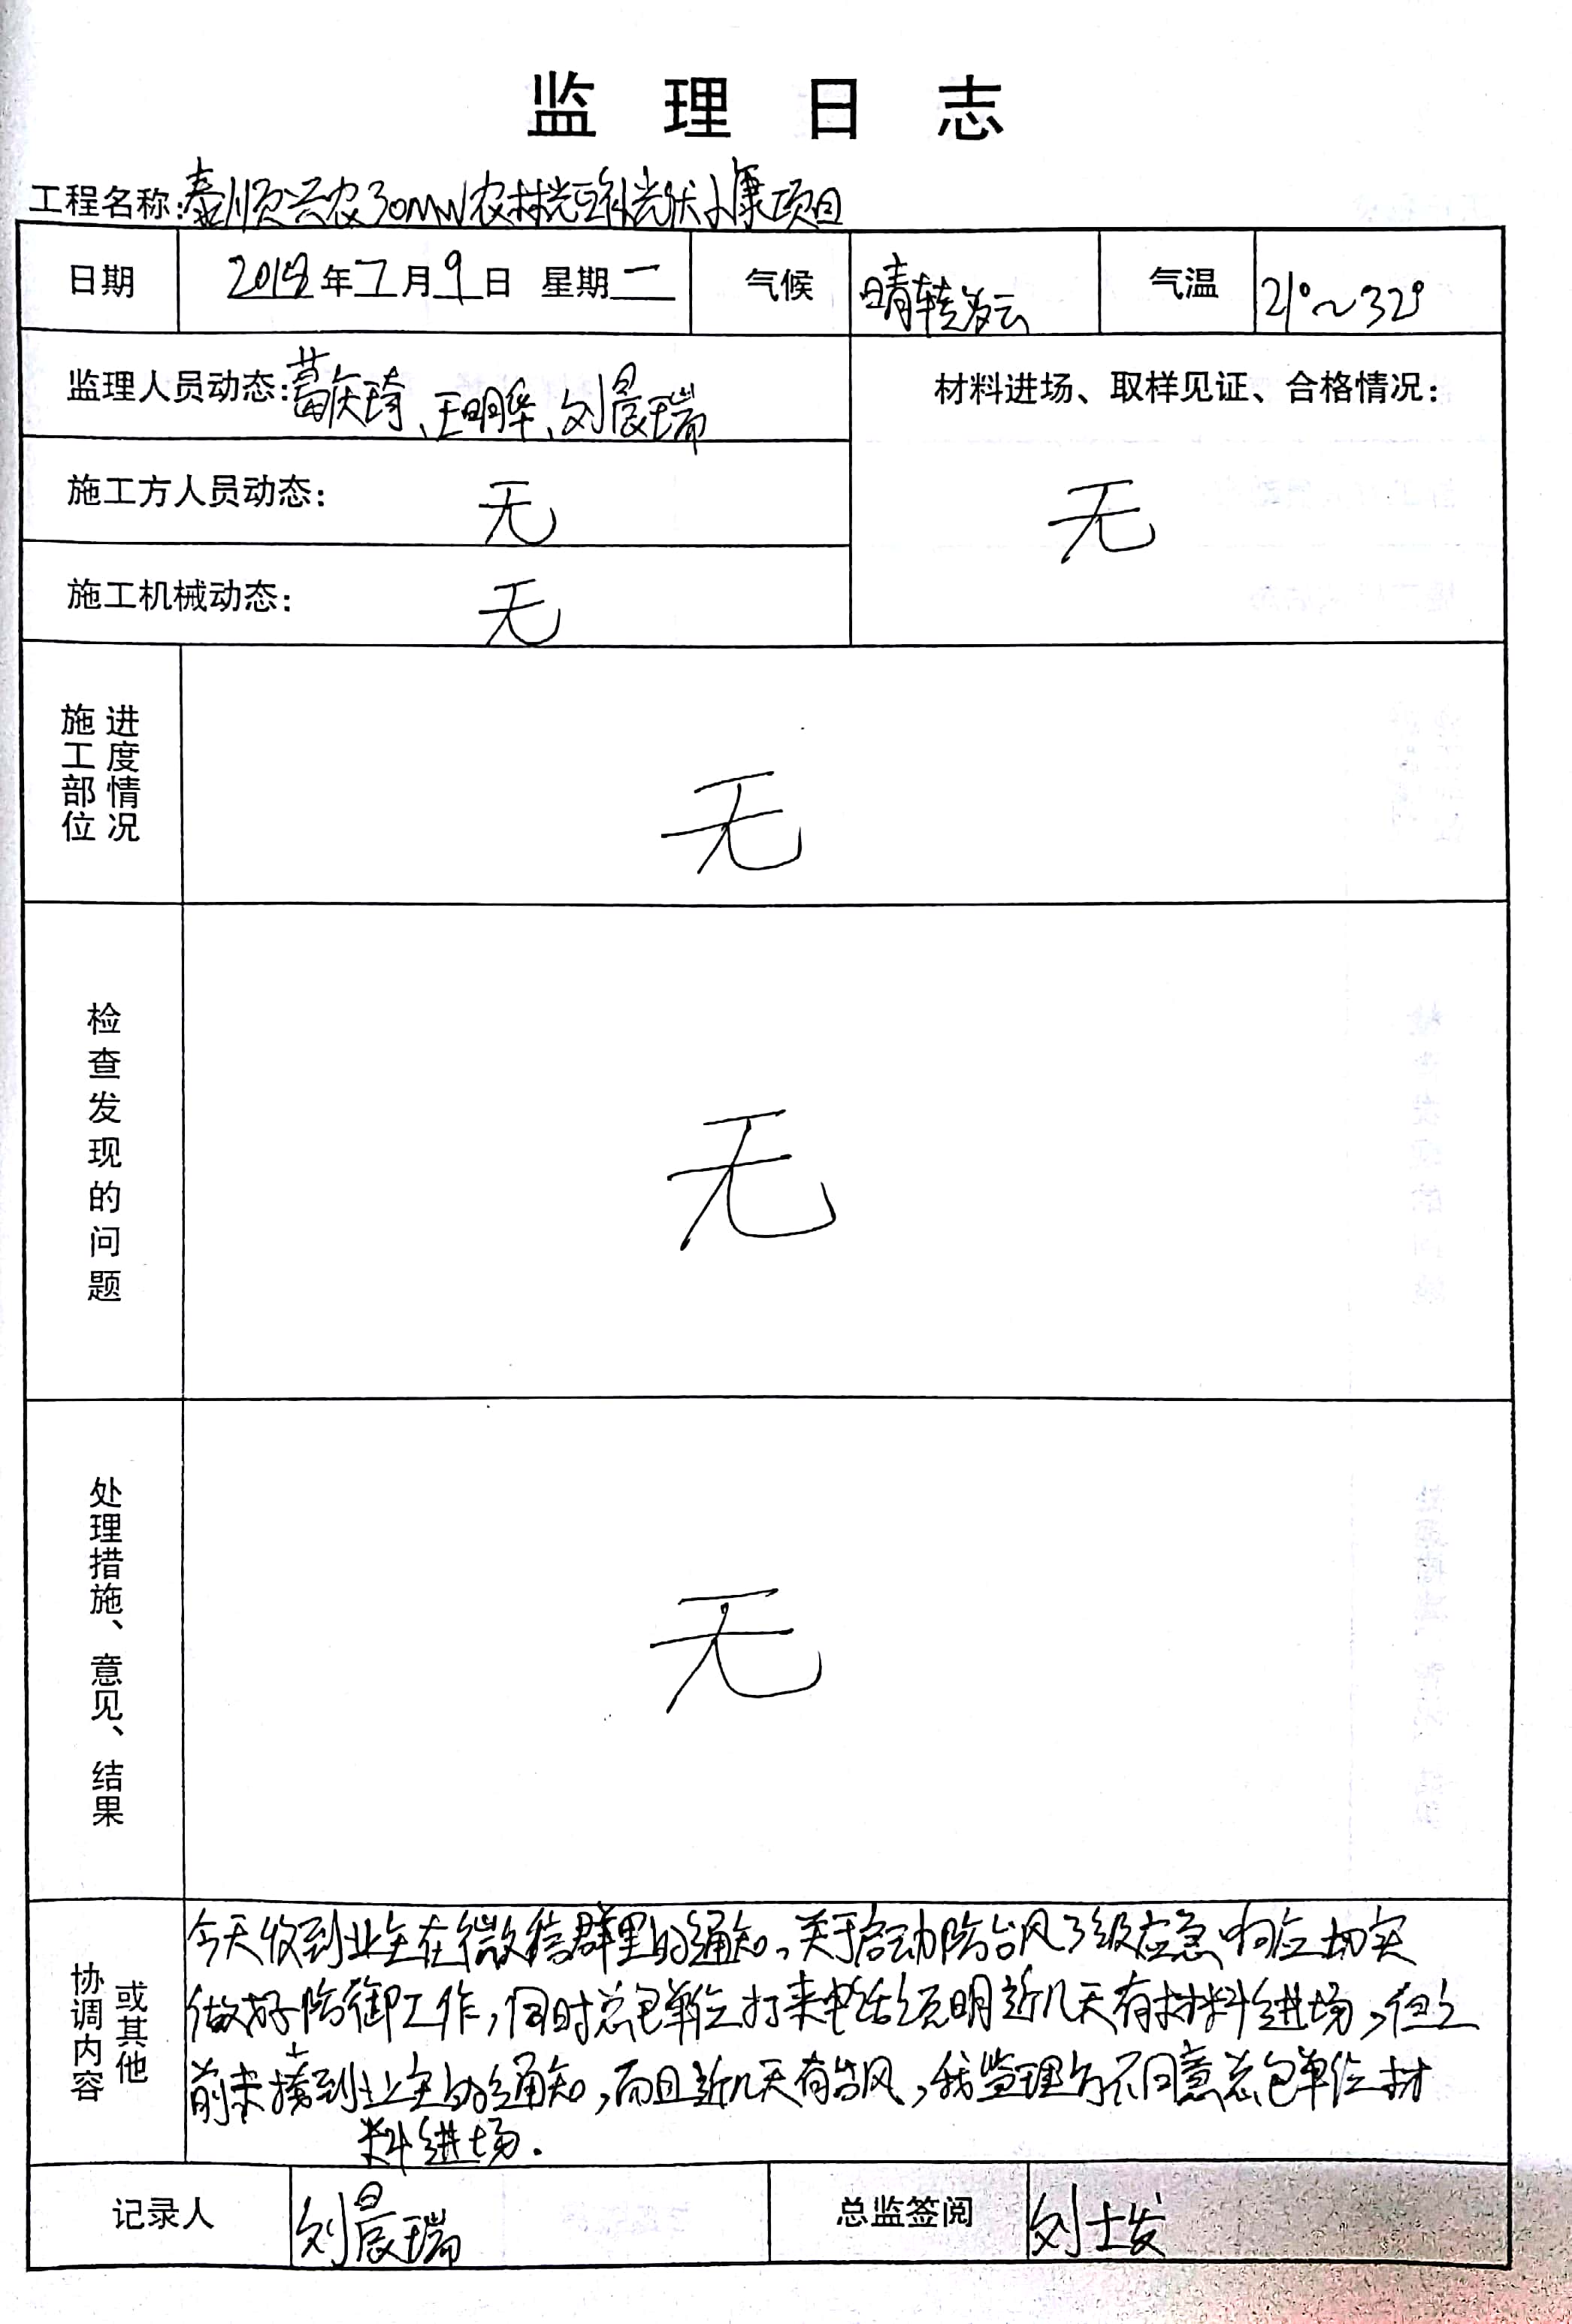 监理日志
工程名称:泰顺兴农30MW农林光互补光伏小康项目
日期 2018年7月9日 星期二 气候 晴转多云 气温 21°~32°
监理人员动态:葛庆琦、王明华、刘晨瑞
材料进场、取样见证、合格情况:
无
施工方人员动态: 无
施工机械动态: 无
施工部位进度情况
无
检查发现的问题
无
处理措施、意见、结果
无
协调内容或其他
今天收到业主在微信群里的通知,关于启动防台风3级应急响应切实
做好防御工作,同时总包单位打来电话说明近几天有材料进场,但之
前未接到业主的通知,而且近几天有台风,我监理方不同意总包单位材
料进场.
记录人 刘晨瑞 总监签阅 刘士发